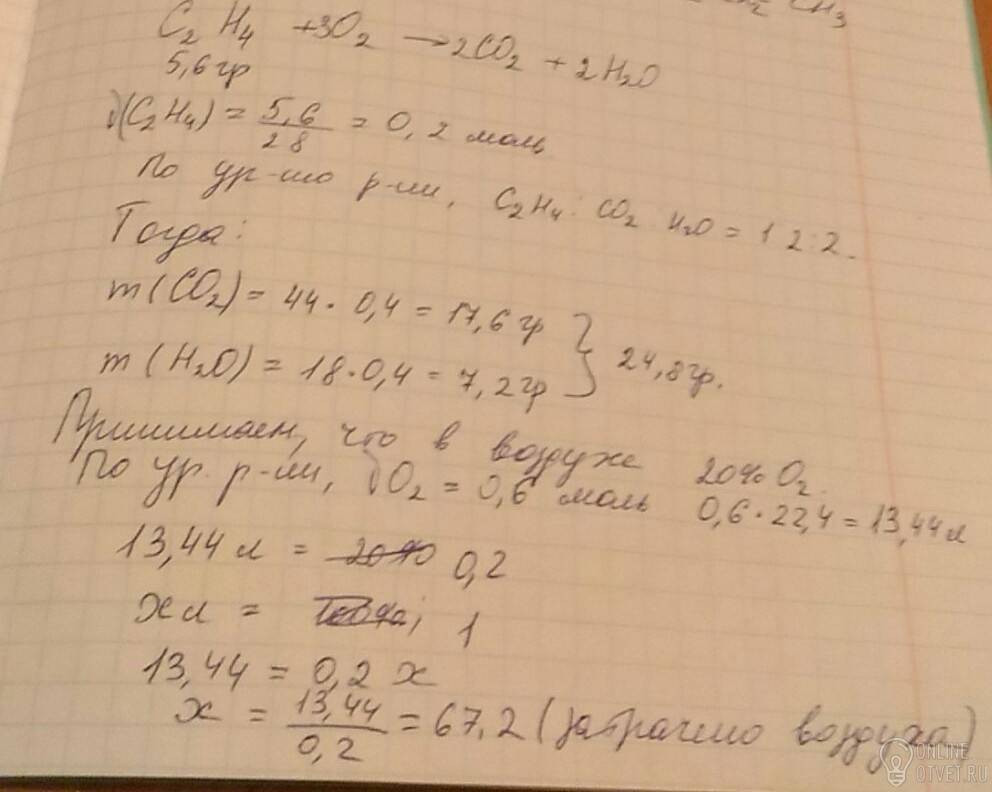 CH3
C2H4 + 3O2 → 2CO2 + 2H2O
5,6 гр
ν(C2H4) = 5,6/28 = 0,2 моль
По ур-нию р-ии, C2H4 : CO2 H2O = 1 2 : 2.
Тогда:
m(CO2) = 44 · 0,4 = 17,6 гр
m(H2O) = 18 · 0,4 = 7,2 гр } 24,8 гр.
Принимаем, что в воздухе 20% O2.
По ур. р-ии, νO2 = 0,6 моль 0,6 · 22,4 = 13,44 л
13,44 л = 0,2
x л = ; 1
13,44 = 0,2 x
x = 13,44/0,2 = 67,2 (затрачено воздуха)
ONLINE
OTVET.RU